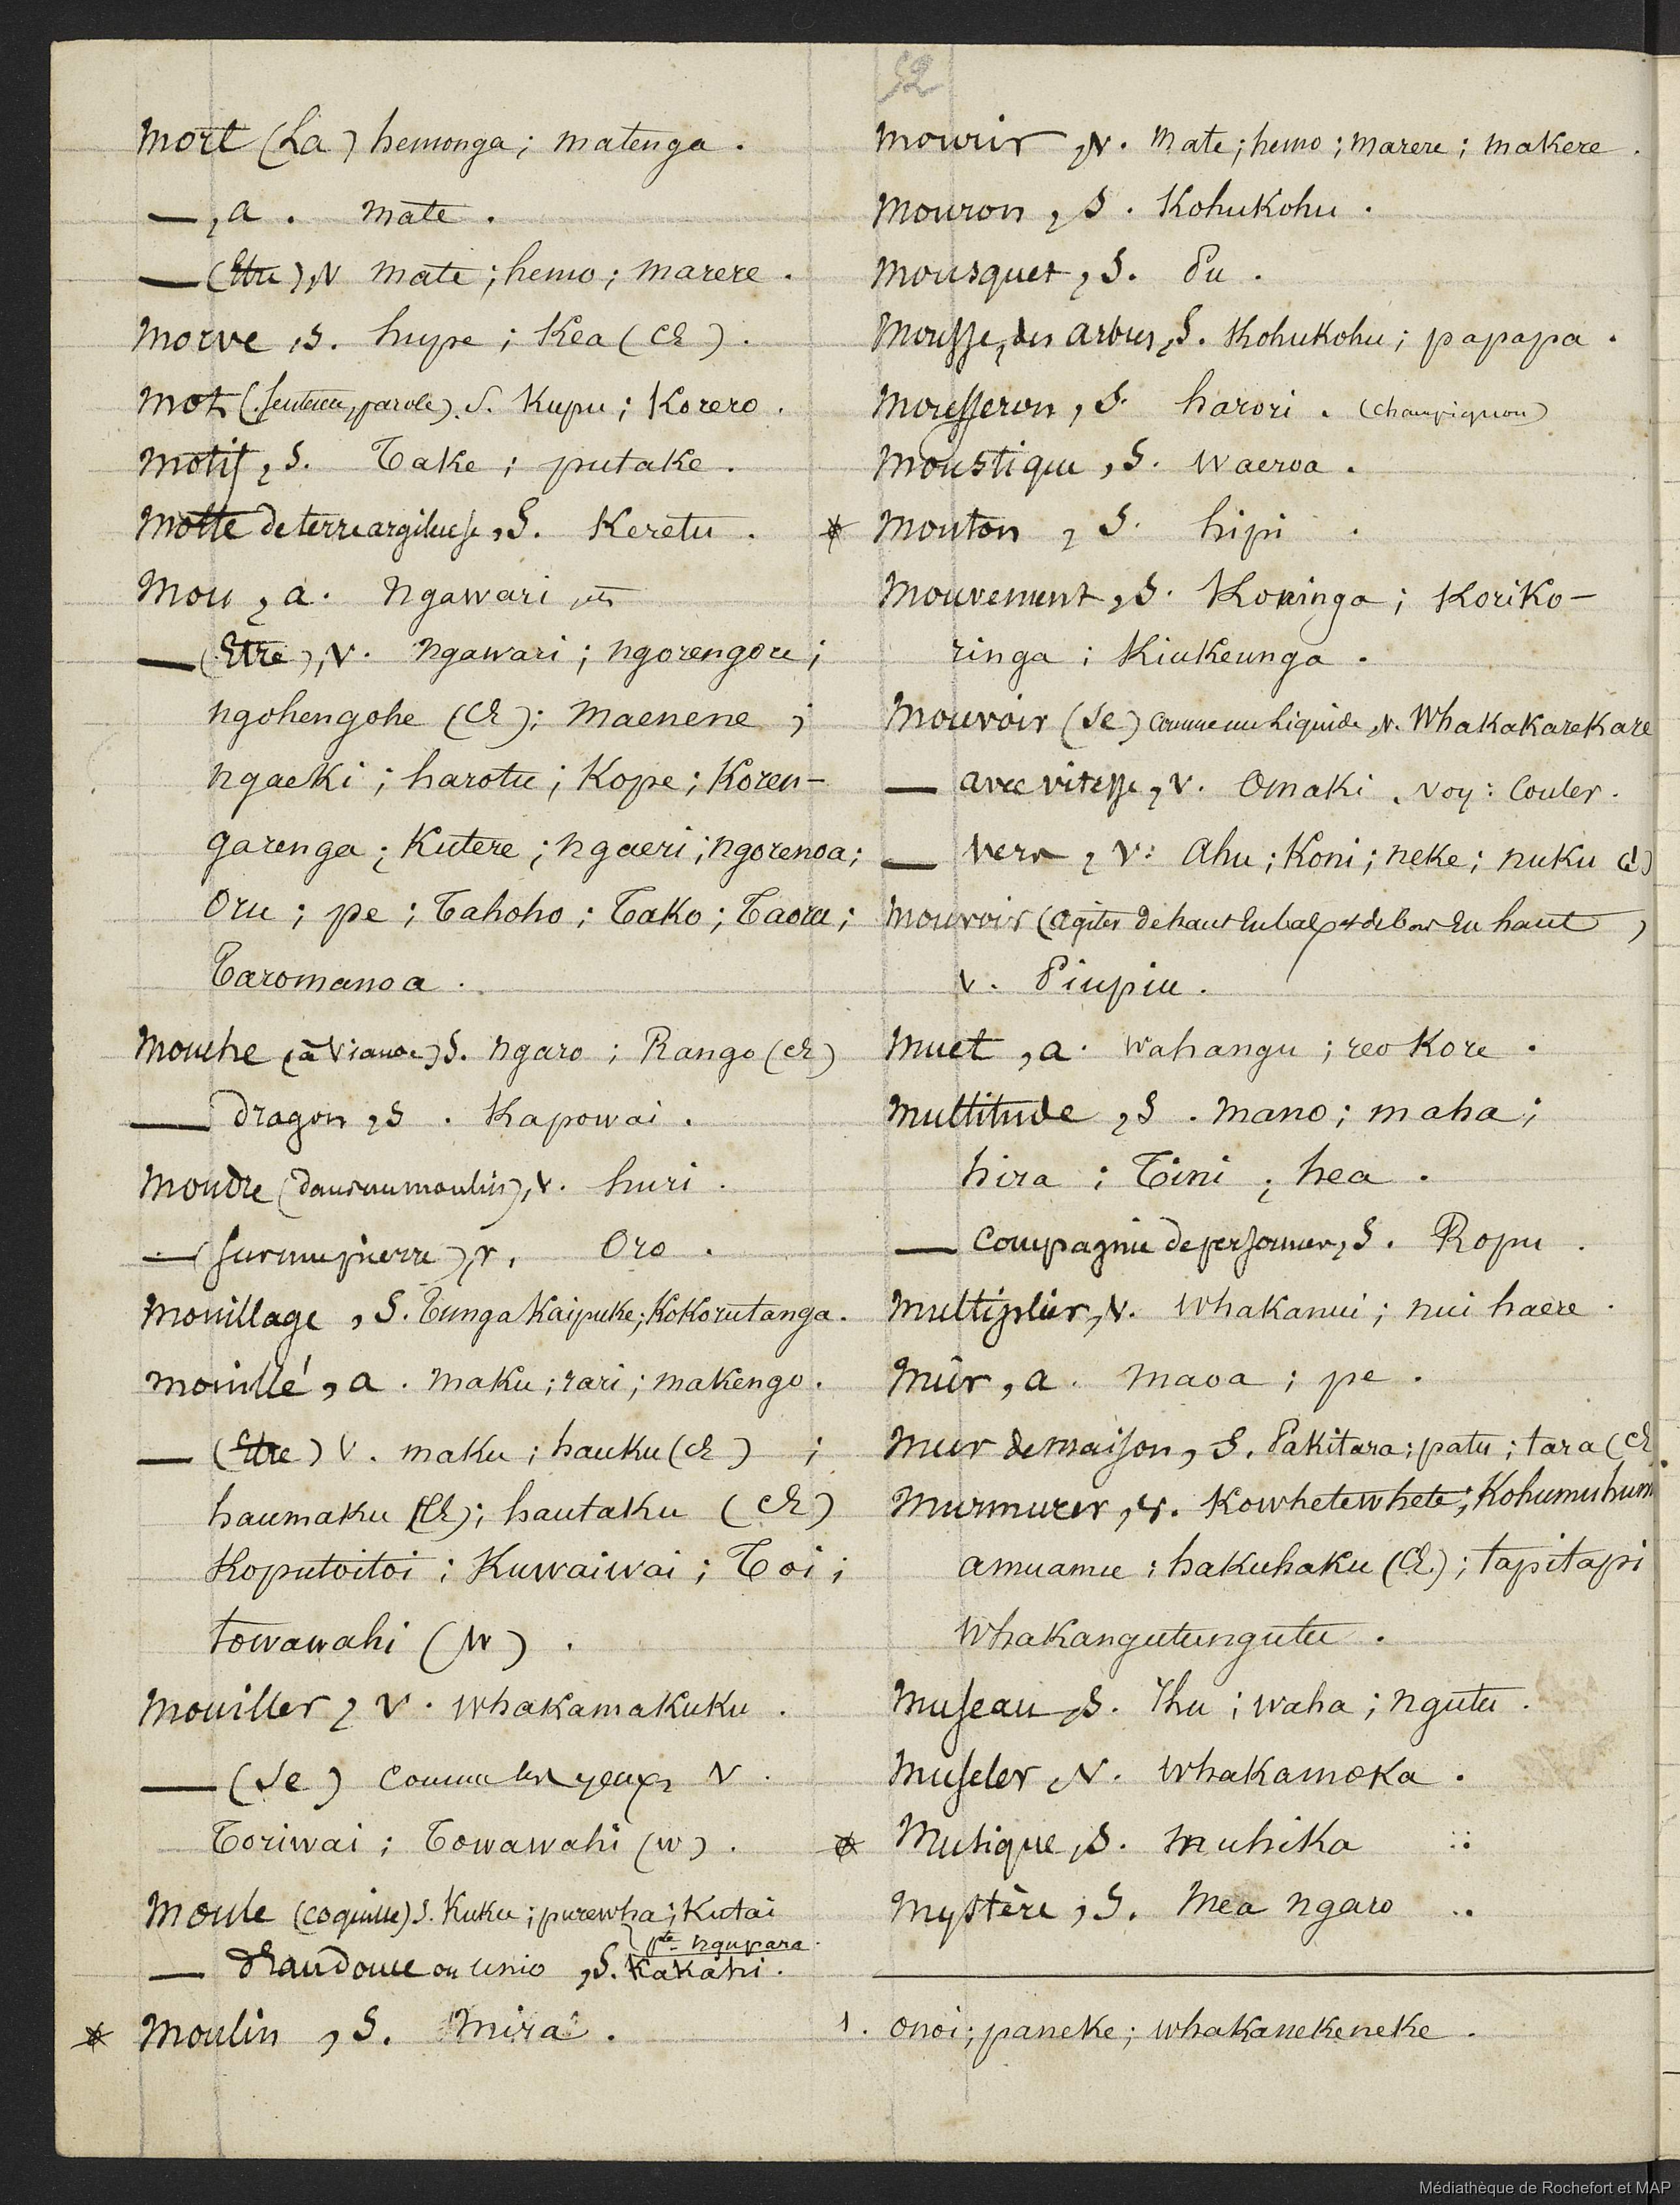 52
Mort (La) hemonga; matenga.
—, a. mate.
— (Etre), v mate; hemo; marere.
Morve, s. hupe; Kea (Ch).
Mot (sentence, parole). s. Kupu; Korero.
Motif, s. Take; putake.
Motte de terre argileuse, s. Keretu.
Mou, a. Ngawari
— (Etre), v. ngawari; ngorengore;
ngohengohe (Ch); maenene;
ngaeki; harotu; Kope; Koren-
garenga; Kutere; ngaeri; ngorenoa;
Oru; pe; Tahoho; Tako; Taoru;
Taromanoa.
Mouche (à viande) s. ngaro; Rango (Ch)
— dragon, s. Kapowai.
Moudre (dans un moulin), v. huri.
— (sur une pierre), v. Oro.
Mouillage, s. Tunga Kaipuke; Kokorutanga.
Mouillé, a. maku; rari; makengo.
— (Etre) v. maku; hauku (Ch);
haumaku (Ch); hautaku (Ch)
Koputoitoi; Kuwaiwai; Toi;
towawahi (W).
Mouiller, v. whakamakuku.
— (Se) comme les yeux, v.
Toriwai; Towawahi (w).
Moule (coquille) s. Kuku; purewha; Kutai
pte ngupara.
— d'eau douce ou unio, s. Kakahi.
* Moulin, s. Mira.
Mourir, v. Mate; hemo; marere; makere.
Mouron, s. Kohukohu.
Mousquet, s. Pu.
Mousse, des arbres, s. Kohukohu; papapa.
Mousseron, s. harori. (champignon)
Moustique, s. Waeroa.
* Mouton, s. hipi.
Mouvement, s. Koninga; Koriko-
ringa; Kiukeunga.
Mouvoir (Se) comme un liquide, v. Whakakarekare
— avec vitesse, v. Omaki. voy: Couler.
— vers, v: Ahu; Koni; neke; nuku (1)
Mouvoir (agiter de haut en bas et de bas en haut),
v. Piupiu.
Muet, a. wahangu; reo Kore.
Multitude, s. mano; maha;
hira; Tini; hea.
— compagnie de personnes, s. Ropu.
Multiplier, v. whakanui; nui haere.
Mûr, a. maoa; pe.
Mur de maison, s. Pakitara; patu; tara (Ch
Murmurer, v. Kowhetewhete; Kohumuhum
amuamu; hakuhaku (Ch.); tapitapi
Whakangutungutu.
Museau, s. Ihu; waha; ngutu.
Museler, v. Whakamoka.
* Musique, s. muhika
Mystère, s. Mea ngaro
1. onoi; paneke; whakanekeneke.
Médiathèque de Rochefort et MAP